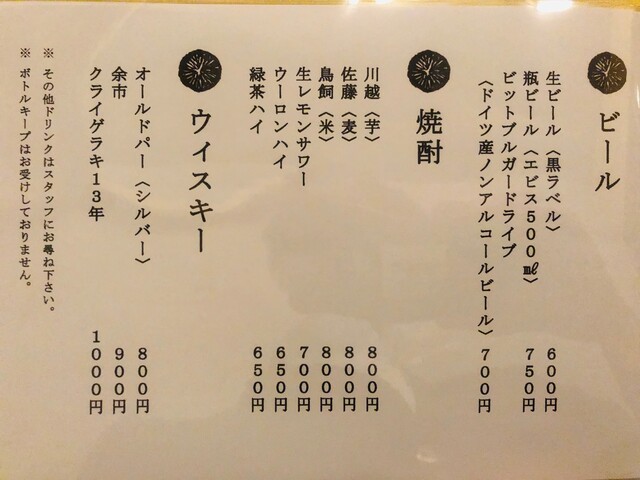 ビール
生ビール〈黒ラベル〉 600円
瓶ビール〈エビス500㎖〉 750円
ビットブルガードライブ
〈ドイツ産ノンアルコールビール〉 700円
焼酎
川越〈芋〉 800円
佐藤〈麦〉 800円
鳥飼〈米〉 800円
生レモンサワー 700円
ウーロンハイ 650円
緑茶ハイ 650円
ウィスキー
オールドパー〈シルバー〉 800円
余市 900円
クライゲラキ13年 1000円
※ その他ドリンクはスタッフにお尋ね下さい。
※ ボトルキープはお受けしておりません。